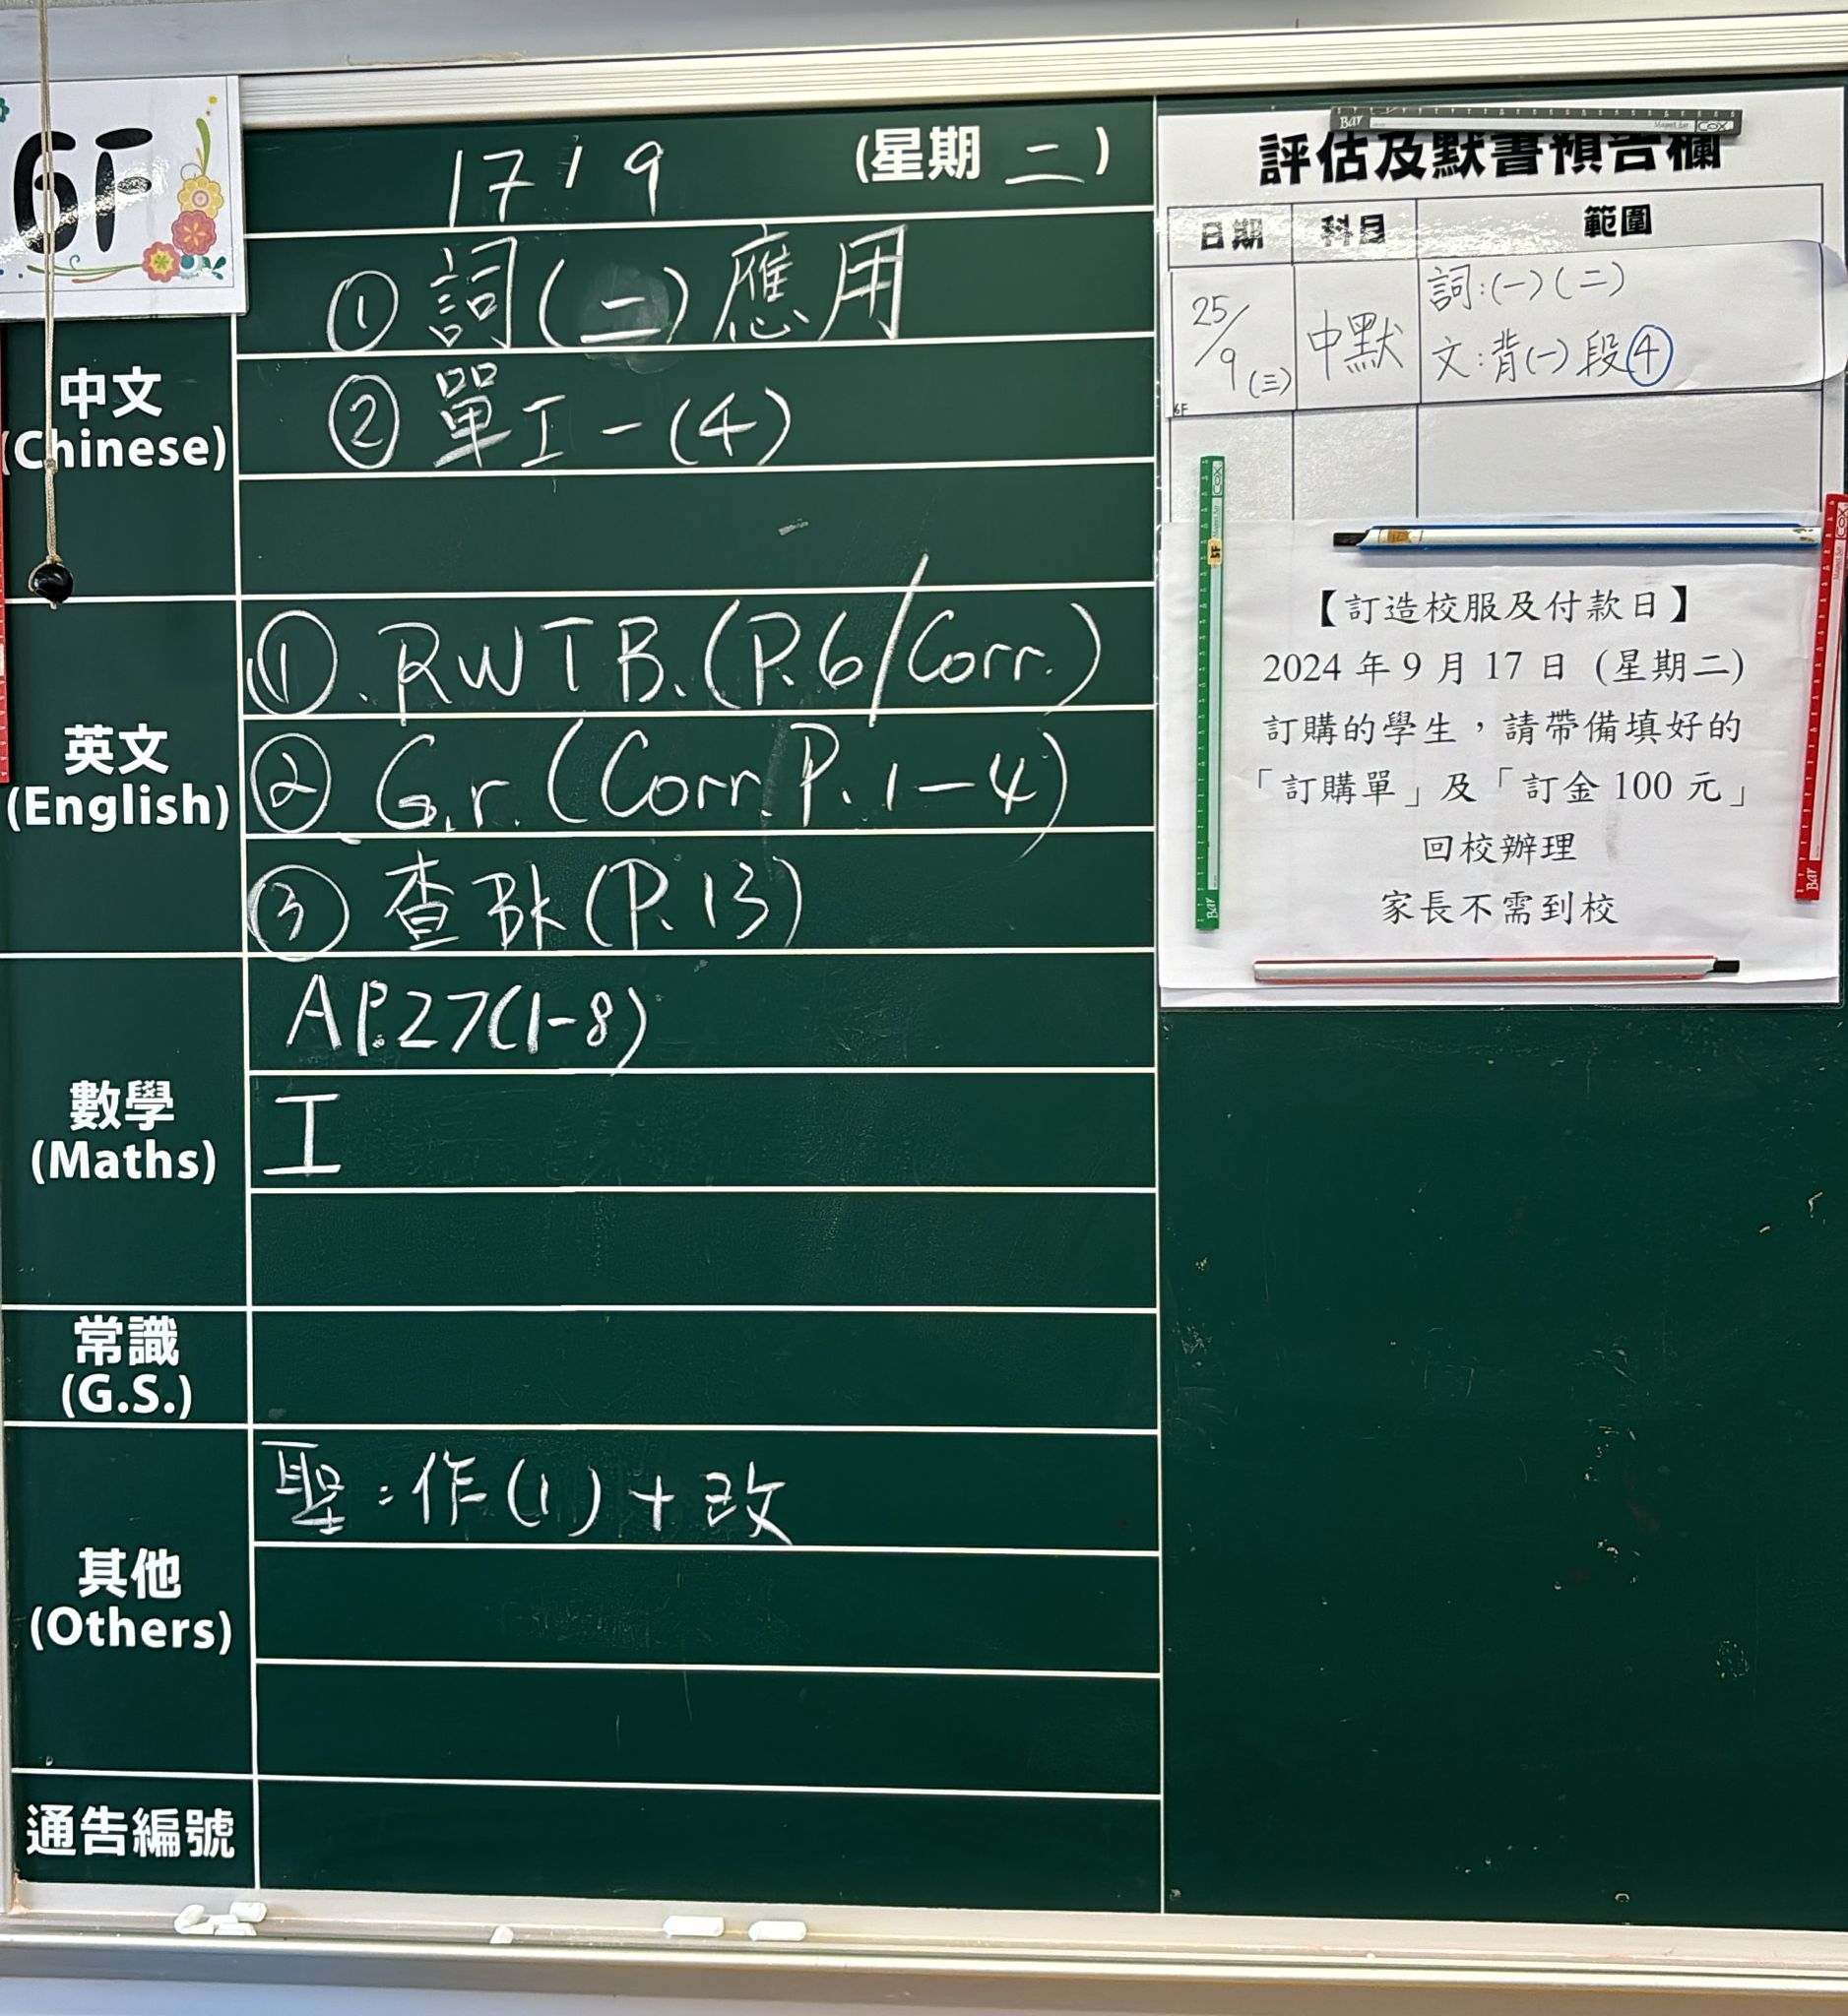 6F
17 / 9 (星期 二)
中文
(Chinese)
① 詞(二)應用
② 單工一(4)
英文
(English)
①. RWTB. (P.6/Corr.)
② Gr. (Corr. P. 1-4)
③ 查Bk (P.13)
數學
(Maths)
A P.27(1-8)
工
常識
(G.S.)
其他
(Others)
聖:作(1)+改
通告編號
評估及默書預告欄
日期 科目 範圍
25/9(三) 中默 詞:(一)(二)
文:背(一)段④
6F
【訂造校服及付款日】
2024 年 9 月 17 日 (星期二)
訂購的學生，請帶備填好的
「訂購單」及「訂金 100 元」
回校辦理
家長不需到校
Bar
COX
COX
Bar
COX
Bar